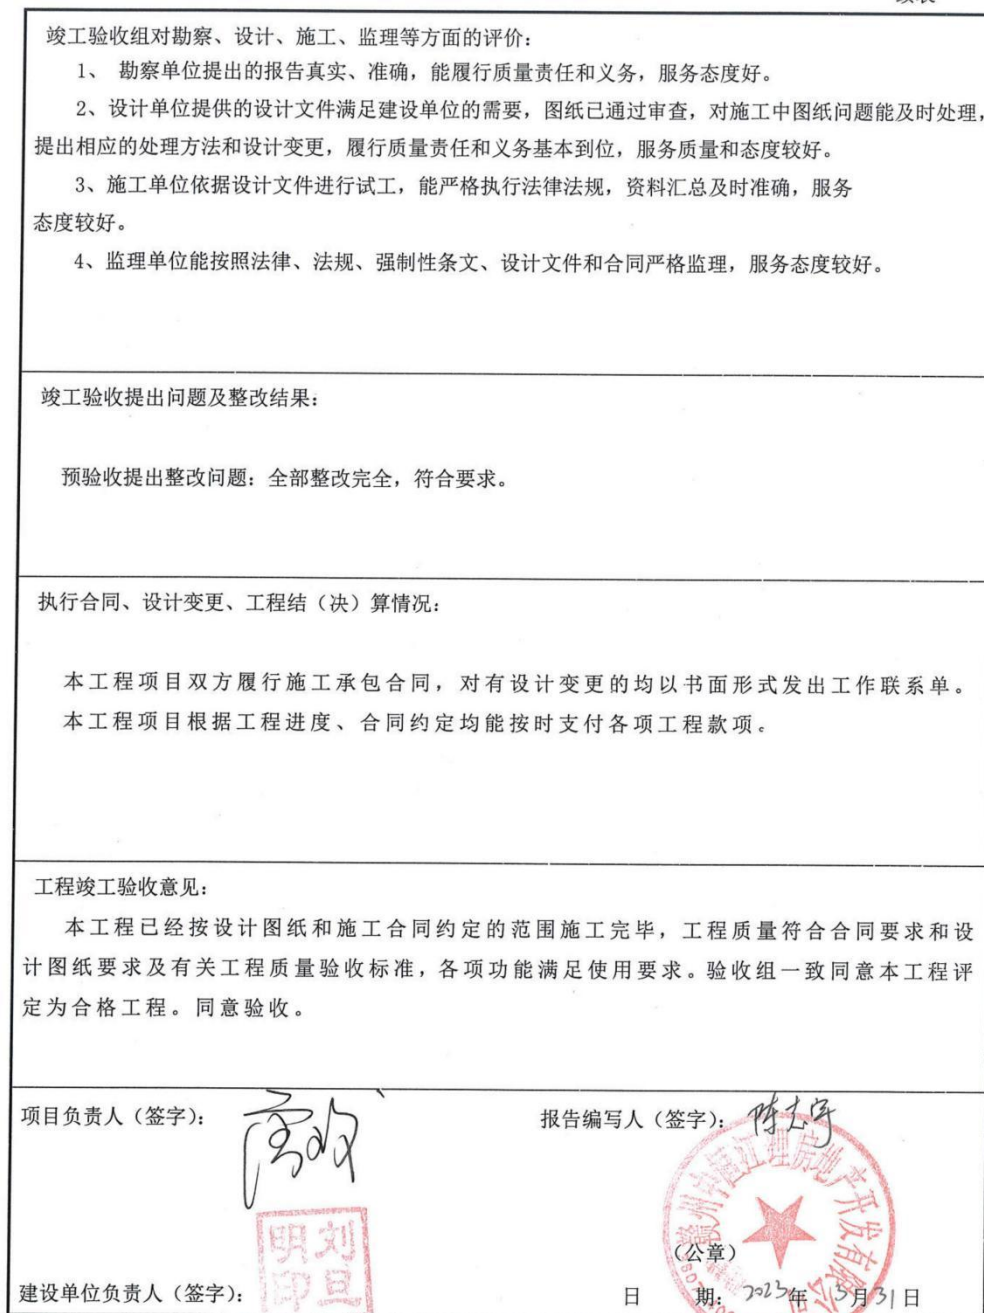 竣工验收组对勘察、设计、施工、监理等方面的评价：
1、 勘察单位提出的报告真实、准确，能履行质量责任和义务，服务态度好。
2、设计单位提供的设计文件满足建设单位的需要，图纸已通过审查，对施工中图纸问题能及时处理，
提出相应的处理方法和设计变更，履行质量责任和义务基本到位，服务质量和态度较好。
3、施工单位依据设计文件进行试工，能严格执行法律法规，资料汇总及时准确，服务
态度较好。
4、监理单位能按照法律、法规、强制性条文、设计文件和合同严格监理，服务态度较好。
竣工验收提出问题及整改结果：
预验收提出整改问题：全部整改完全，符合要求。
执行合同、设计变更、工程结（决）算情况：
本工程项目双方履行施工承包合同，对有设计变更的均以书面形式发出工作联系单。
本工程项目根据工程进度、合同约定均能按时支付各项工程款项。
工程竣工验收意见：
本工程已经按设计图纸和施工合同约定的范围施工完毕，工程质量符合合同要求和设
计图纸要求及有关工程质量验收标准，各项功能满足使用要求。验收组一致同意本工程评
定为合格工程。同意验收。
项目负责人（签字）： 报告编写人（签字）：陈志宇
赣州中恒江理房地产开发有限公司
刘旦明印
（公章）
建设单位负责人（签字）： 日 期：2023年 3月31日